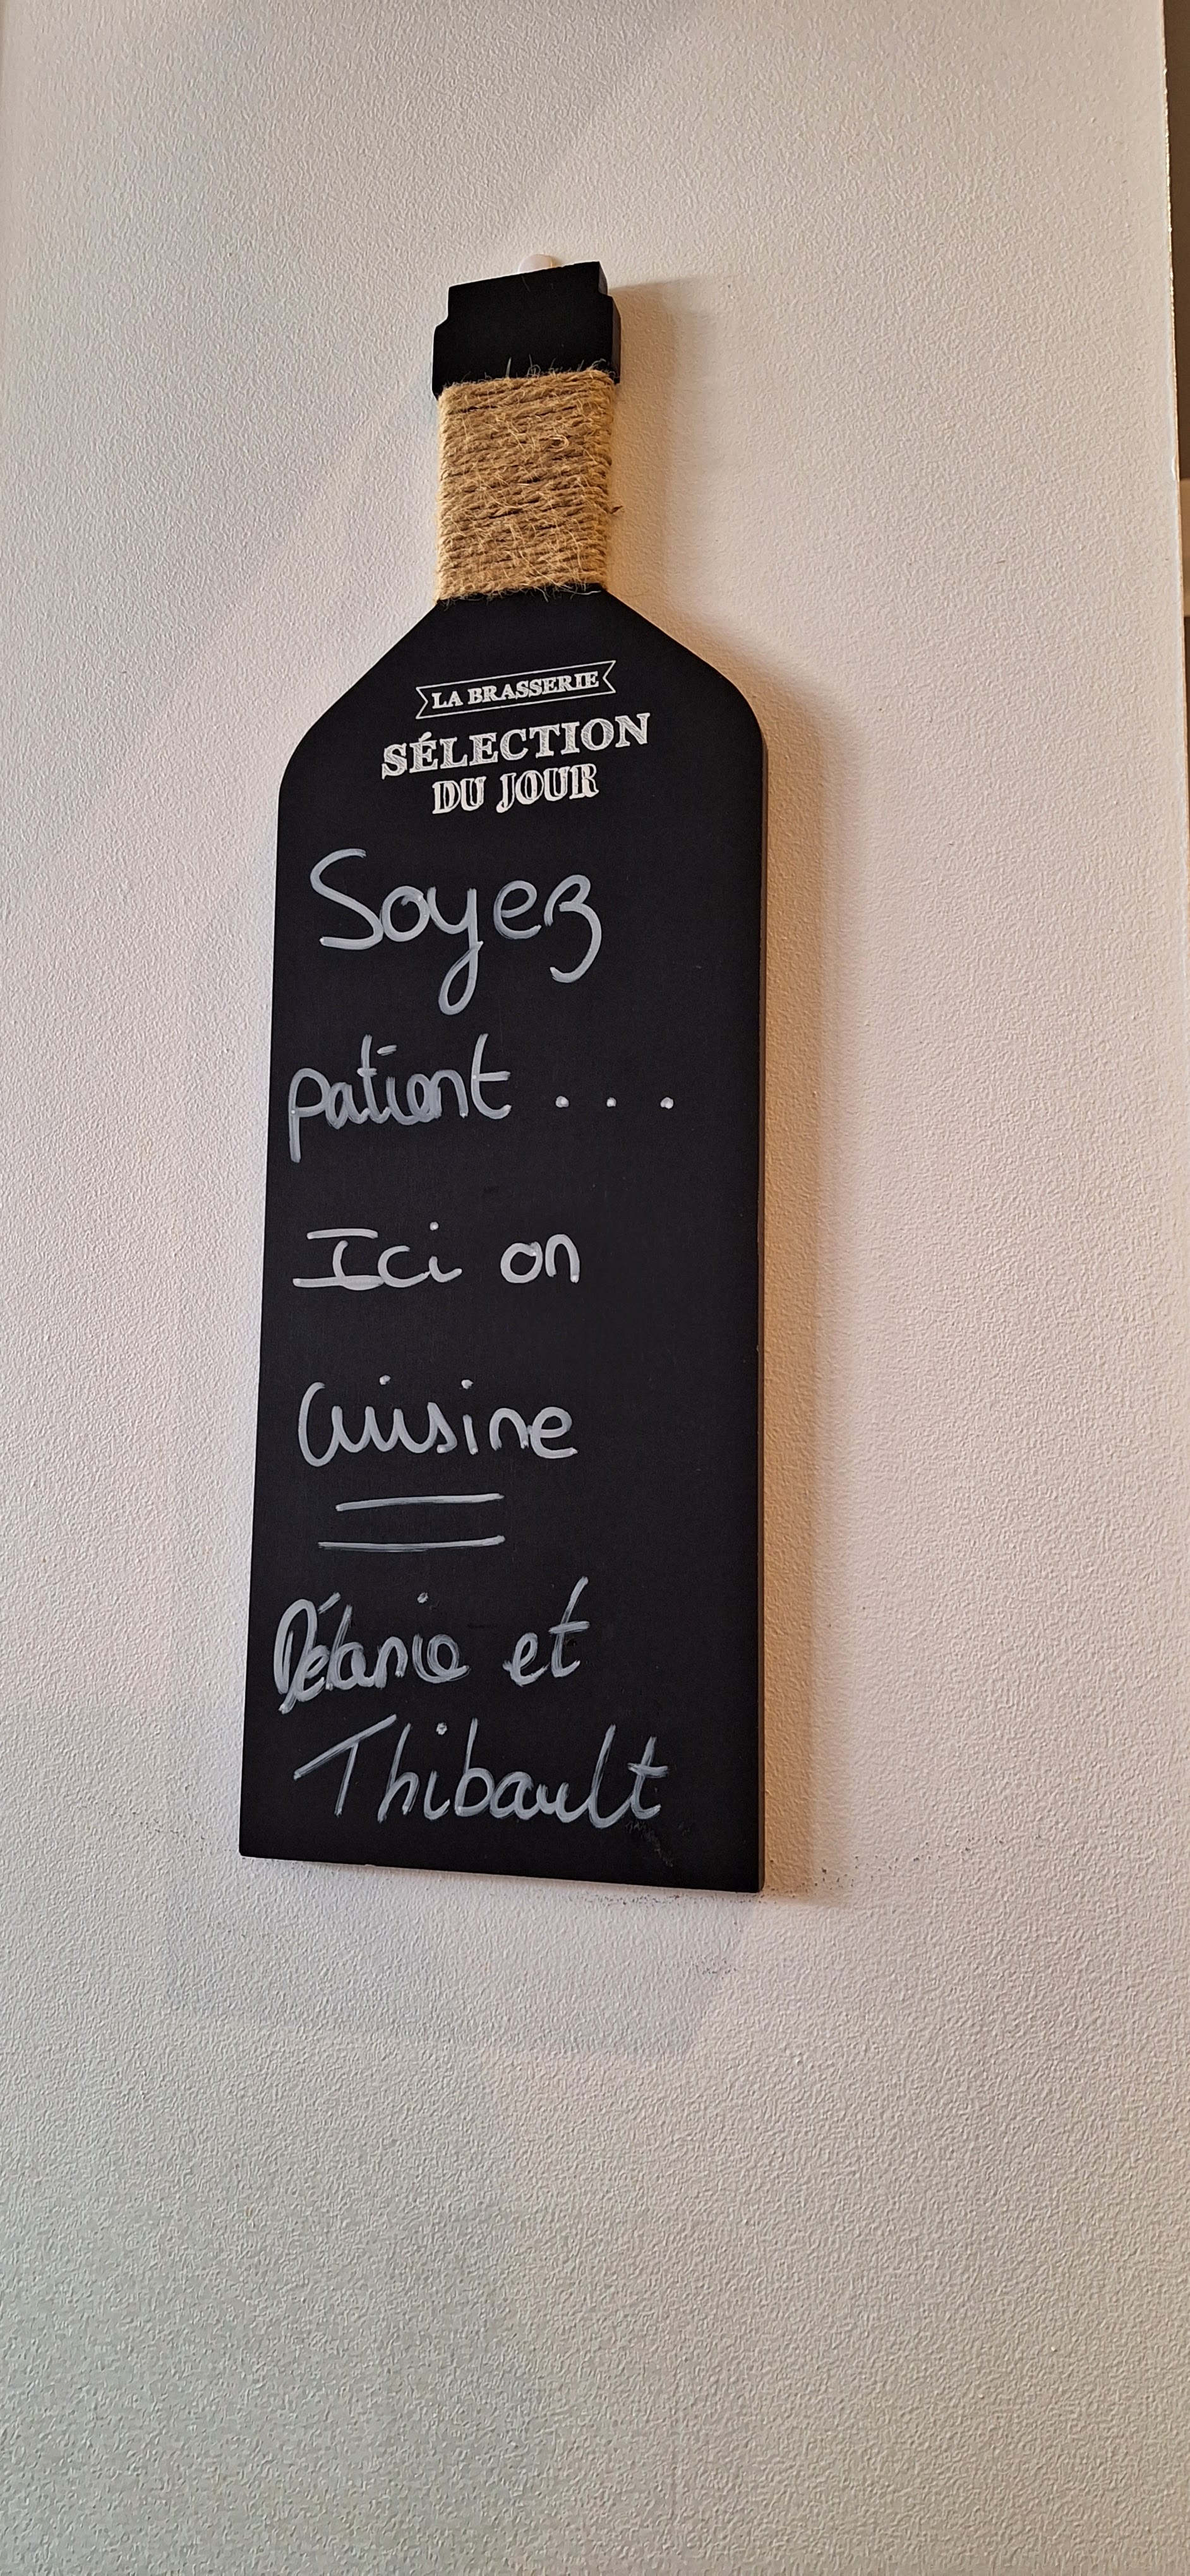 LA BRASSERIE
SÉLECTION
DU JOUR
Soyez
patient ...
Ici on
Cuisine
et
Thibault